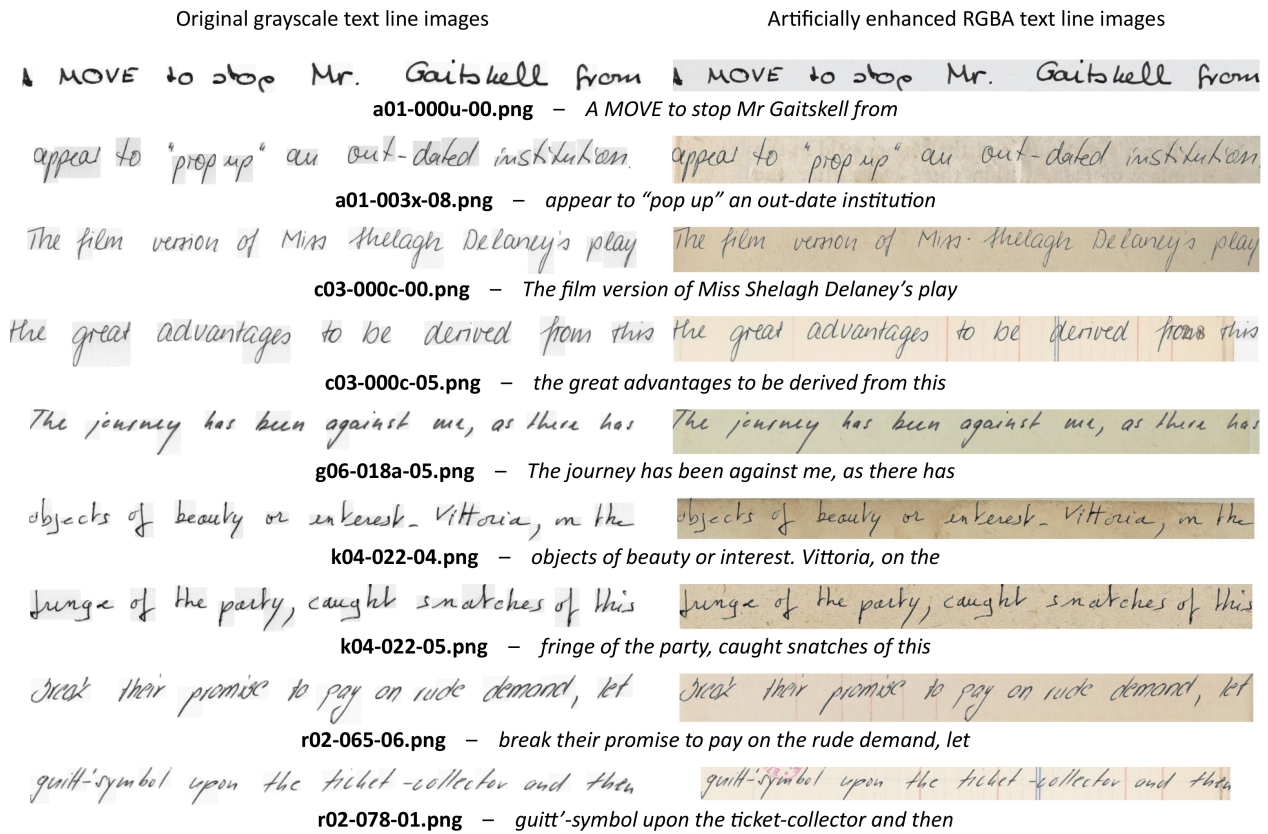 Original grayscale text line images Artificially enhanced RGBA text line images
A MOVE to stop Mr. Gaitskell from A MOVE to stop Mr. Gaitskell from
a01-000u-00.png – A MOVE to stop Mr Gaitskell from
appear to "prop up" an out-dated institution. appear to "prop up" an out-dated institution.
a01-003x-08.png – appear to “pop up” an out-date institution
The film version of Miss Shelagh Delaney's play The film version of Miss. Shelagh Delaney's play
c03-000c-00.png – The film version of Miss Shelagh Delaney’s play
the great advantages to be derived from this the great advantages to be derived from this
c03-000c-05.png – the great advantages to be derived from this
The journey has been against me, as there has The journey has been against me, as there has
g06-018a-05.png – The journey has been against me, as there has
objects of beauty or interest. Vittoria, on the objects of beauty or interest. Vittoria, on the
k04-022-04.png – objects of beauty or interest. Vittoria, on the
fringe of the party, caught snatches of this fringe of the party, caught snatches of this
k04-022-05.png – fringe of the party, caught snatches of this
break their promise to pay on rude demand, let break their promise to pay on rude demand, let
r02-065-06.png – break their promise to pay on the rude demand, let
guitt-'symbol upon the ticket-collector and then guitt-'symbol upon the ticket-collector and then
r02-078-01.png – guitt’-symbol upon the ticket-collector and then